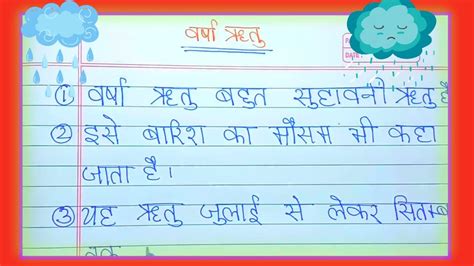 वर्षा ऋतु
DATE
① वर्षा ऋतु बहुत सुहावनी ऋतु है
② इसे बारिश का मौसम भी कहा
जाता है।
③ यह ऋतु जुलाई से लेकर